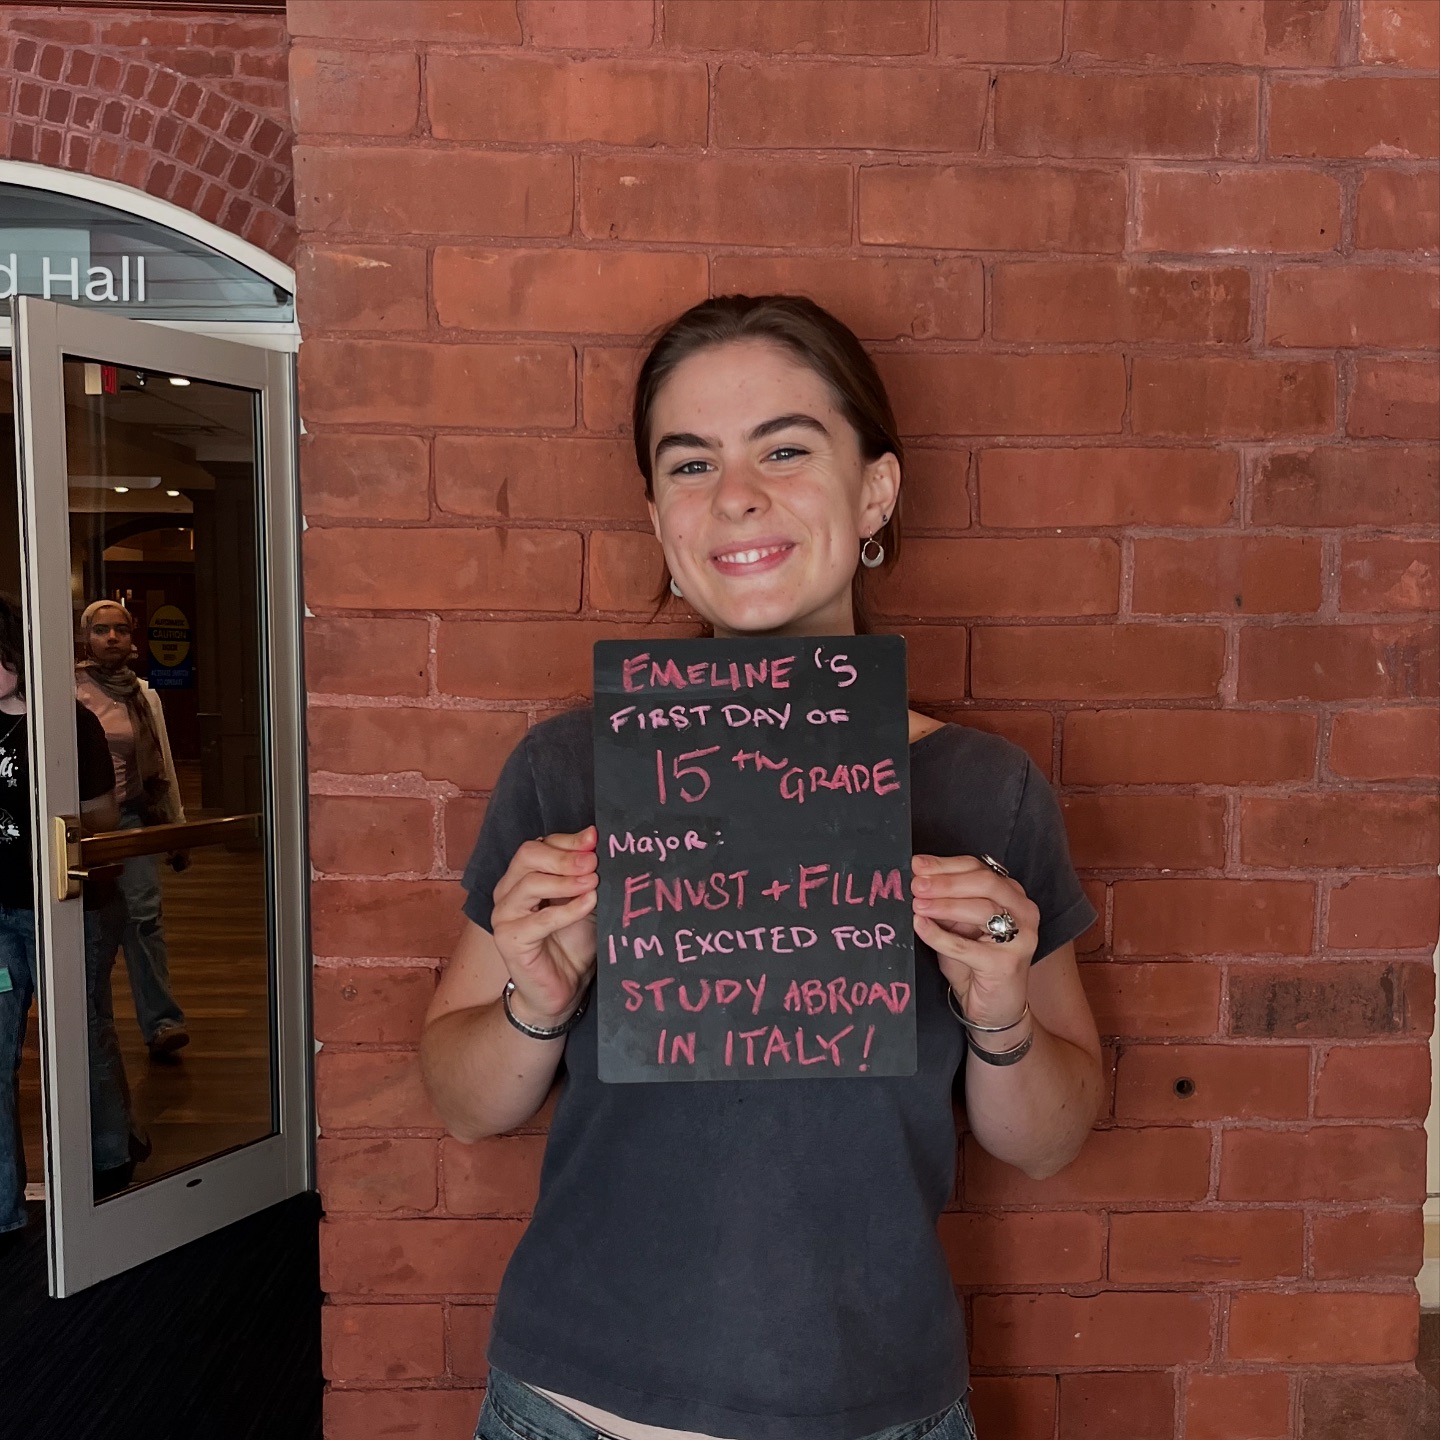 d Hall
EMELINE 'S
FIRST DAY OF
15th GRADE
Major:
ENVST + FILM
I'M EXCITED FOR..
STUDY ABROAD
IN ITALY!
CAUTION